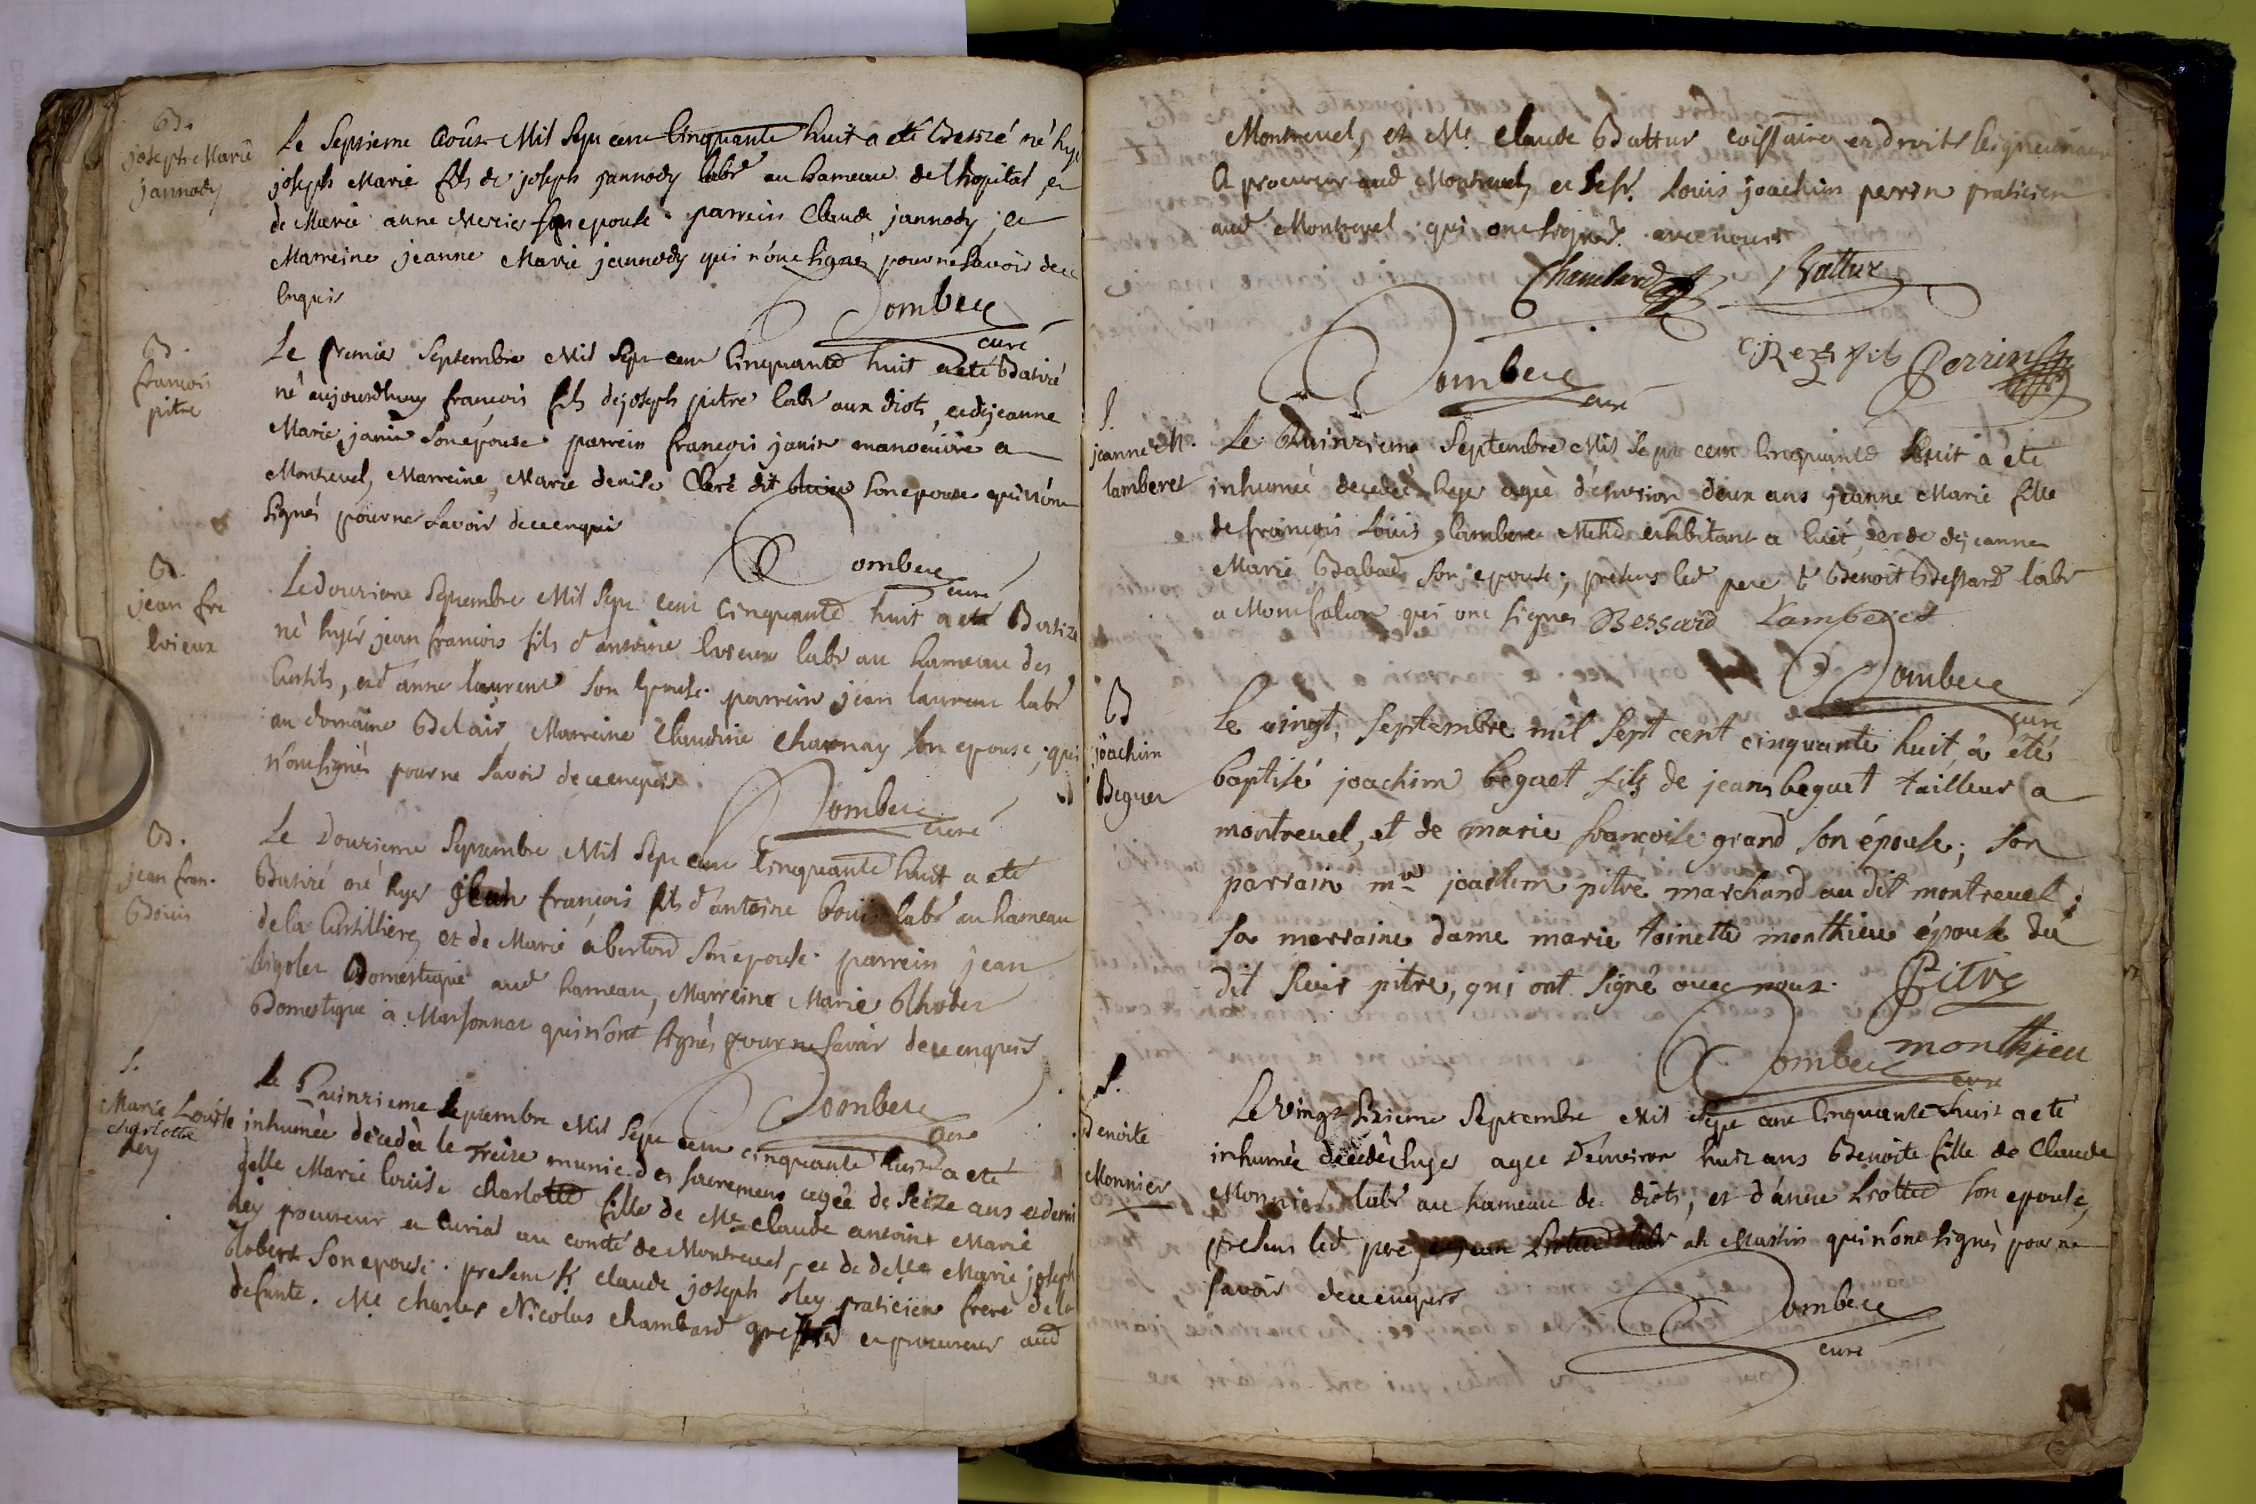 B.
joseph Marie
jannody
Le Septieme Août Mil Sept cent Cinquante huit a eté Batizé né hyer
joseph Marie fils de joseph jannody labr au hameau de lhopital, et
de Marie anne Mezier son epouse. parrein Claude jannody, et
Marreine jeanne Marie jannody qui n'ont signés pour ne savoir de ce
Enquis
Dombece
curé
B
francois
pitre
Le premier Septembre Mil Sept cent Cinquante huit a eté Batizé
né aujourdhuy francois fils de joseph pitre labr aux diots, et de jeanne
Marie janin son épouse parrein francois janin manoeuvre a
Montrevel, Marreine, Marie denise Cleré dit son epouse qui n'ont
signés pour ne savoir de ce enquis
Dombece
curé
B.
jean fr
loieux
Le douzieme Septembre Mil Sept cent Cinquante huit a eté Batizé
né hyer jean francois fils d'antoine labr au hameau des
Curtils, et d'anne laurent son Epouse. parrein jean laurent labr
au domaine Belair, Marreine Claudine Charnay son epouse, qui
n'ont signés pour ne savoir de ce enquis.
Dombece
curé
B.
jean fran.
Boüis
Le Douzieme Septembre Mil Sept cent Cinquante huit a eté
Batizé né hyer jean francois fils d'antoine boüis labr au hameau
de la Curtilliere, et de Marie aberton son epouse. parrein jean
Domestique aud hameau, Marreine Marie
Domestique à Marsonnat qui n'ont signés pour ne savoir de ce enquis
Dombece
curé
S.
Marie Louise
charlotte
Rey
Le Quinzieme Septembre Mil Sept cent Cinquante huit a eté
inhumée décedée le Treize munie des sacremens agée de seize ans et demi
delle Marie loüise charlotte fille de Me Claude antoine Marie
Rey procureur et curial au comté de Montrevel, et de delle Marie joseph
Robert son epouse. present Sr claude joseph Rey praticien frere de la
defunte. Me charles Nicolas chambard greffier et procureur aud
Montrevel, et Me Claude Battur commissaire en droits seigneuriaux
& procureur aud Montrevel, et le Sr Louis joachim perrin praticien
aud Montrevel qui ont signés avec nous
Chambard Battur
Rey fils Perrin
Dombece
curé
S.
jeanne M.
lamberet
Le Quinzieme Septembre Mil Sept cent Cinquante huit a eté
inhumée decedée hyer agée d'environ deux ans jeanne Marie fille
de francois Louis lamberet Mchd et habitant a , et de jeanne
Marie Babad son epouse, presens led pere & Benoit Bessard labr
a Montfalcon qui ont signés Bessard Lamberet
Dombece
curé
B
joachim
Beguet
le vingt, septembre mil sept cent cinquante huit, à été
baptisé joachim beguet fils de jean beguet tailleur a
montrevel, et de marie françoise grand son épouse; son
parrain mr joachim pitre marchand au dit montrevel;
sa marraine dame marie toinette monthieu épouse du
dit sieur pitre, qui ont signé avec nous. Pitre
monthieu
Dombece
curé
S.
Benoite
Monnier
Le Vingt Sixieme Septembre Mil Sept cent Cinquante huit a eté
inhumée decedée hyer agée D'environ huit ans Benoite fille de Claude
Monnier labr au hameau des diots, et d'anne son epouse,
presens led pere qui n'ont signés pour ne
savoir de ce enquis
Dombece
curé